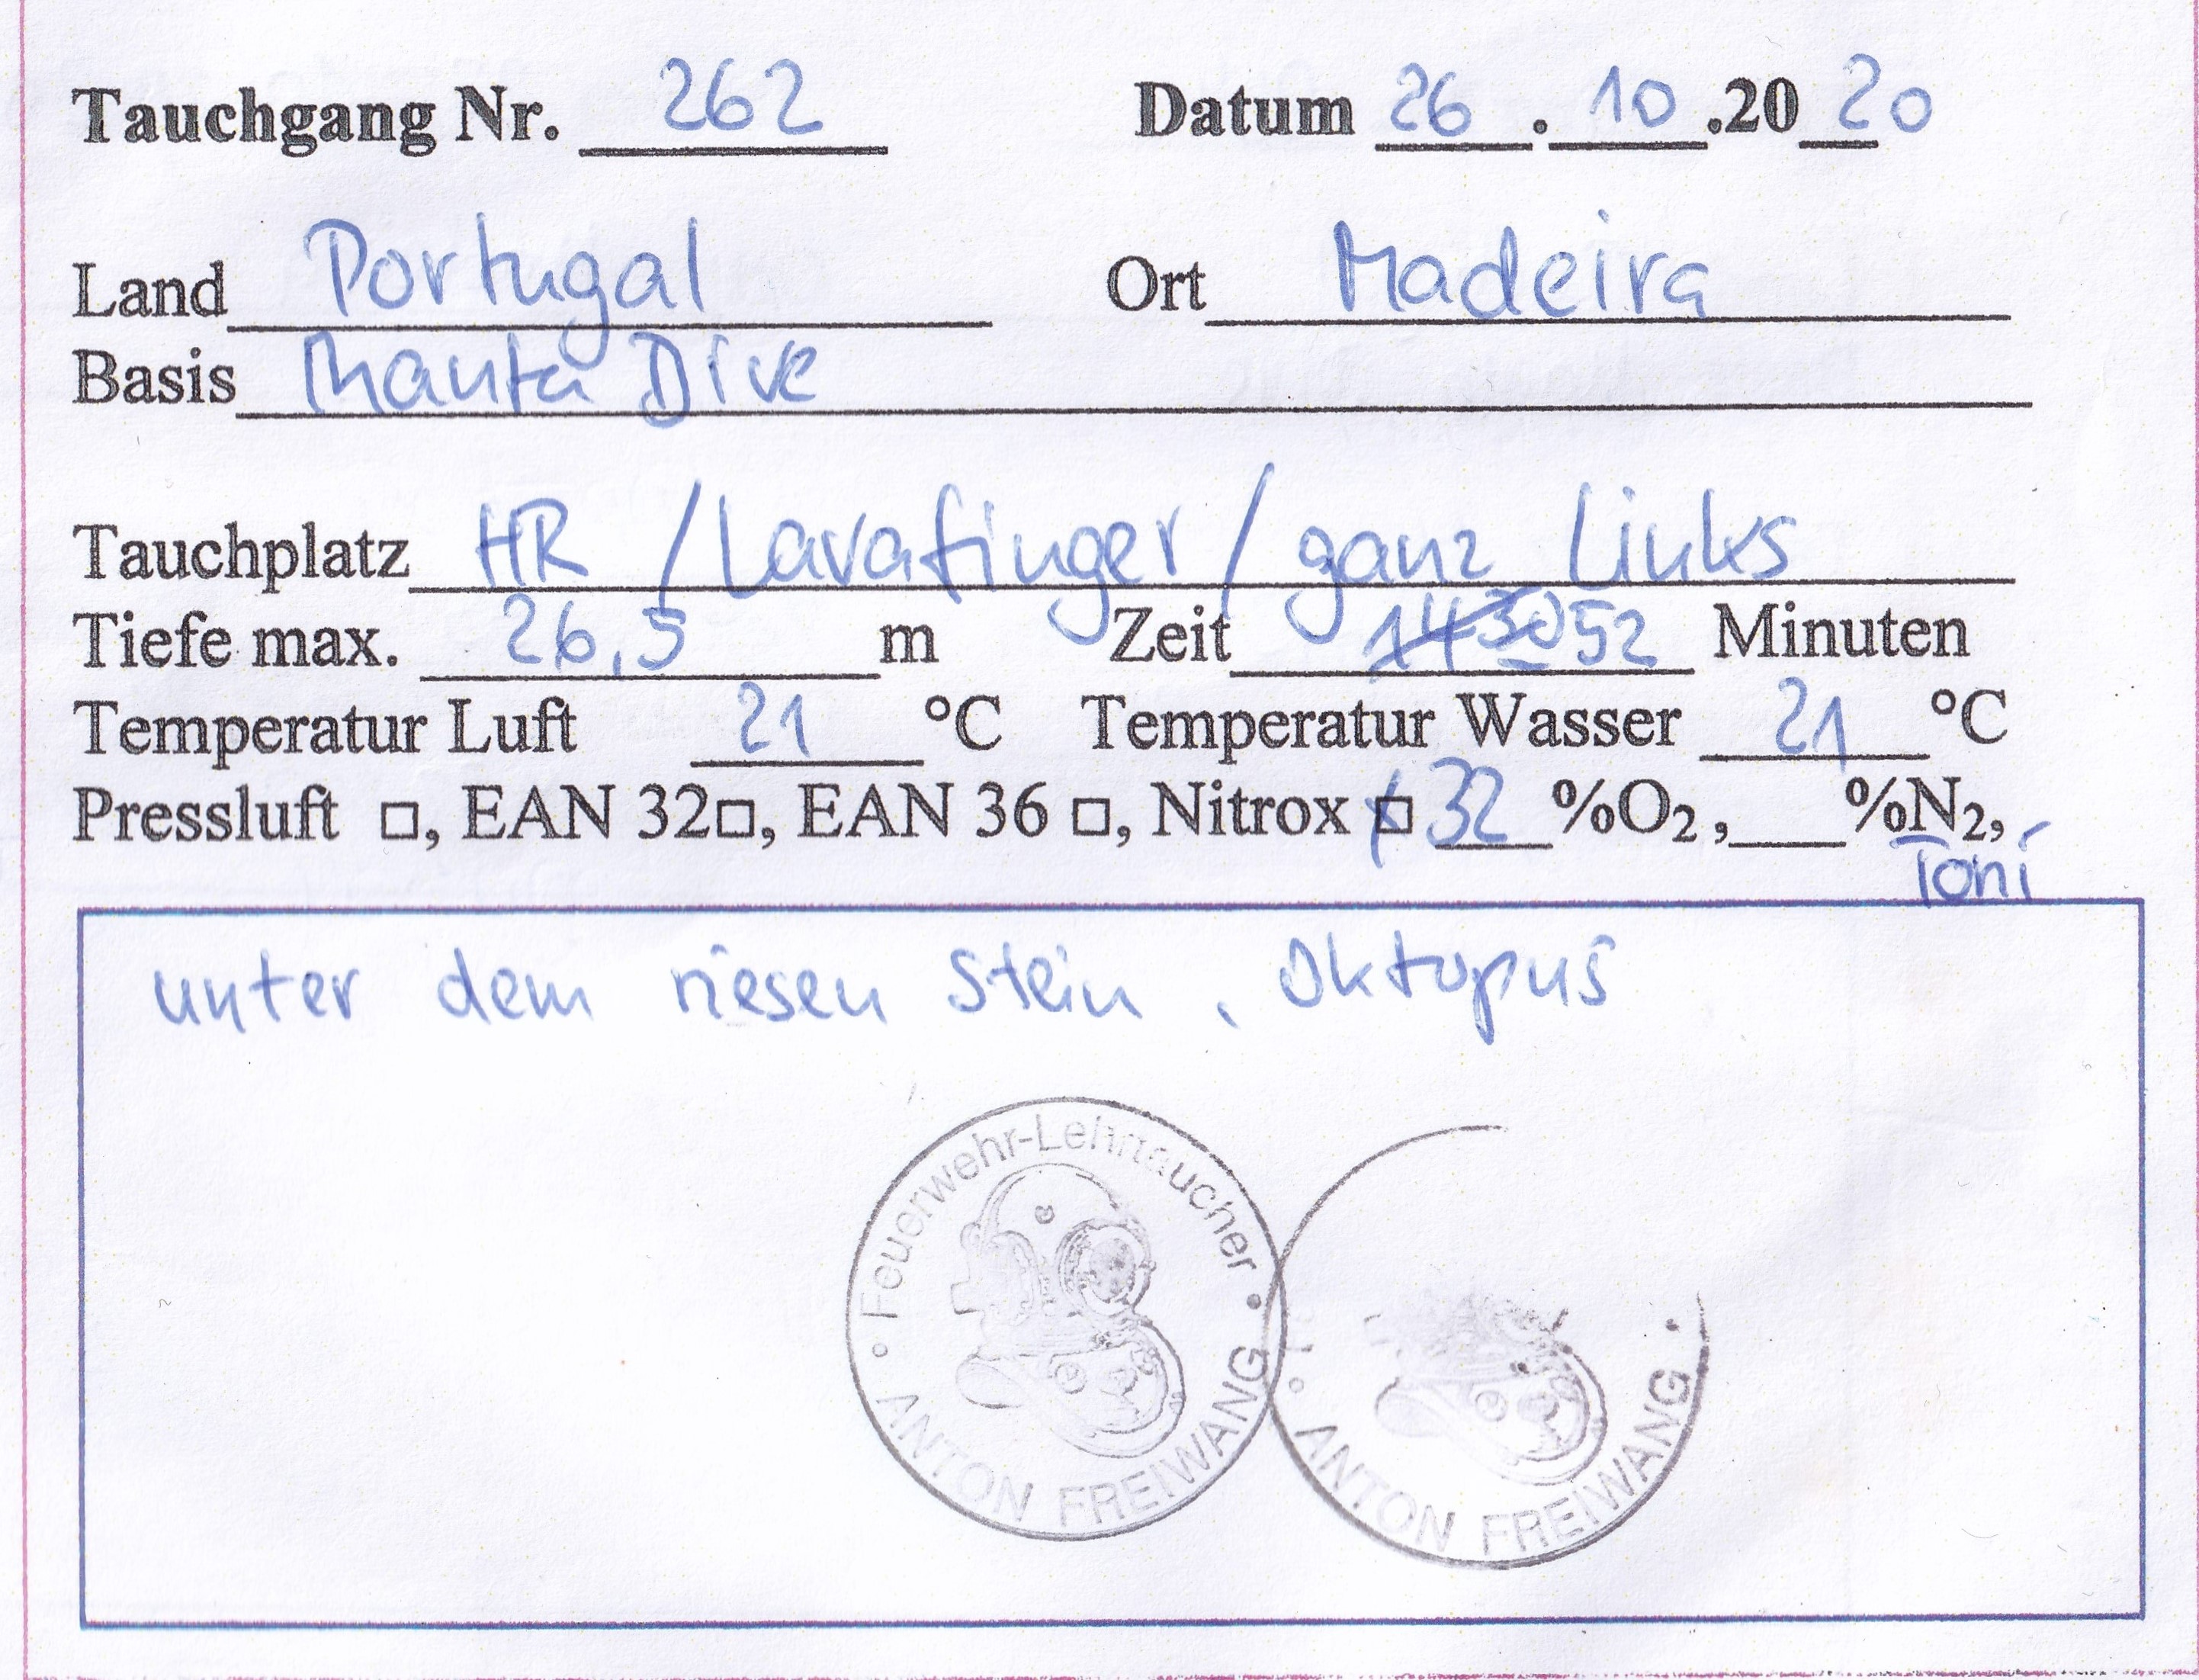 Tauchgang Nr. 262 Datum 26.10.2020
Land Portugal Ort Madeira
Basis Manta Dive
Tauchplatz HR / Lavafinger / ganz Links
Tiefe max. 26,5 m Zeit 1430 52 Minuten
Temperatur Luft 21 °C Temperatur Wasser 21 °C
Pressluft □, EAN 32□, EAN 36 □, Nitrox ☒ 32 %O₂, ___%N₂,
Toni
unter dem riesen Stein, Oktopus
• Feuerwehr-Lehrtaucher •
ANTON FREIWANG
ANTON FREIWANG